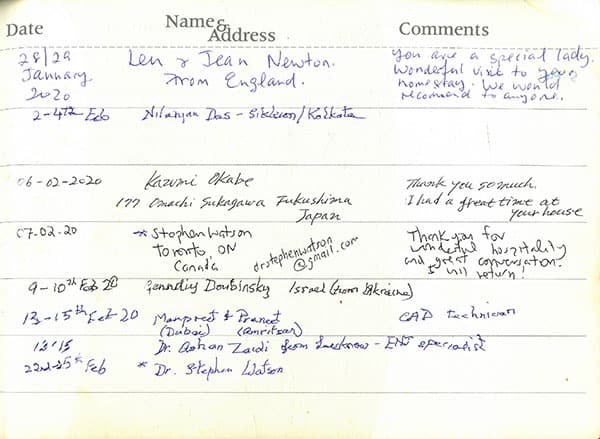 Date Name & Address Comments
28/29 January 2020 Len & Jean Newton. From England. You are a special lady.
Wonderful visit to your
homestay. We would
recommend to anyone.
2-4th Feb Nilanjan Das - Sikkim/Kolkata
06-02-2020 Kazumi Okabe Thank you so much.
177 Omachi Sukagawa Fukushima I had a great time at
Japan your house
07.02.20 * Stephen Watson Thank you for
Toronto, ON wonderful hospitality
Canada drstephenwatson and great conversation.
@gmail.com I will return!
9-10th Feb 20 Gennadiy Doubinsky Israel (from Ukraine)
13-15th Feb 20 Manpreet & Praneet CAD technician
(Dubai) (Amritsar)
13/15 Dr. Zaidi from Lucknow - ENT specialist
22nd-25th Feb * Dr. Stephen Watson